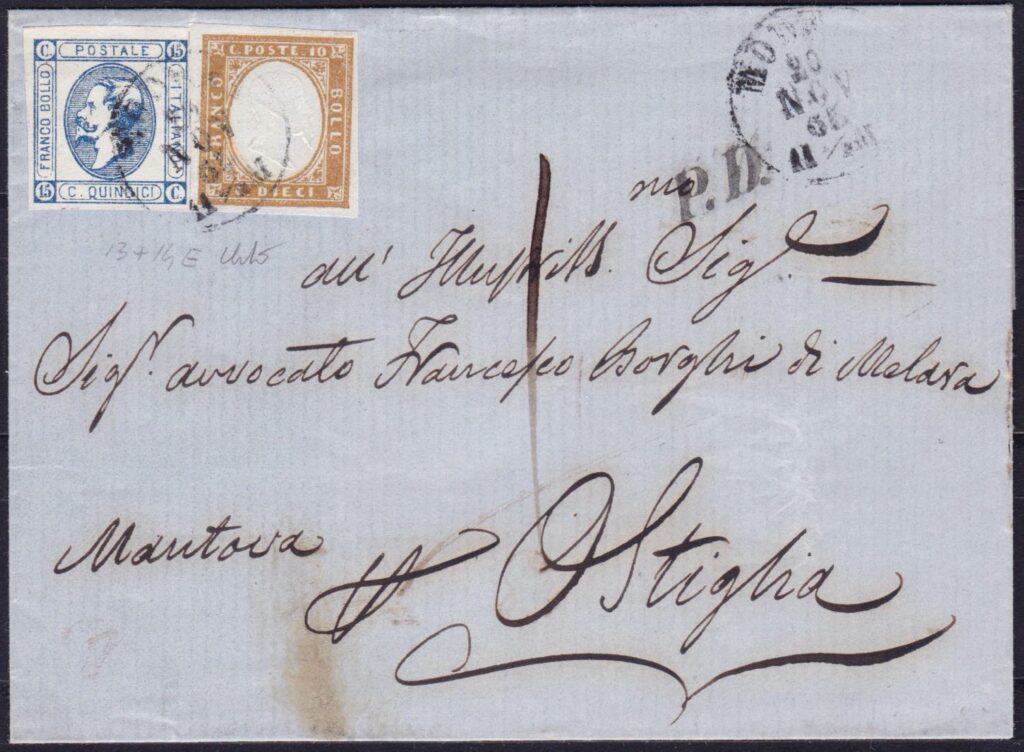 C. POSTALE 15
FRANCO BOLLO
ITALIANO
15 C. QUINDICI C.
C. POSTE. 10
FRANCO
BOLLO
DIECI
20
NOV
65
P.D.
13 + 14E
all' Illustriss.mo Sigr.
Sigr. avvocato Francesco Borghi di Melara
Mantova
Ostiglia